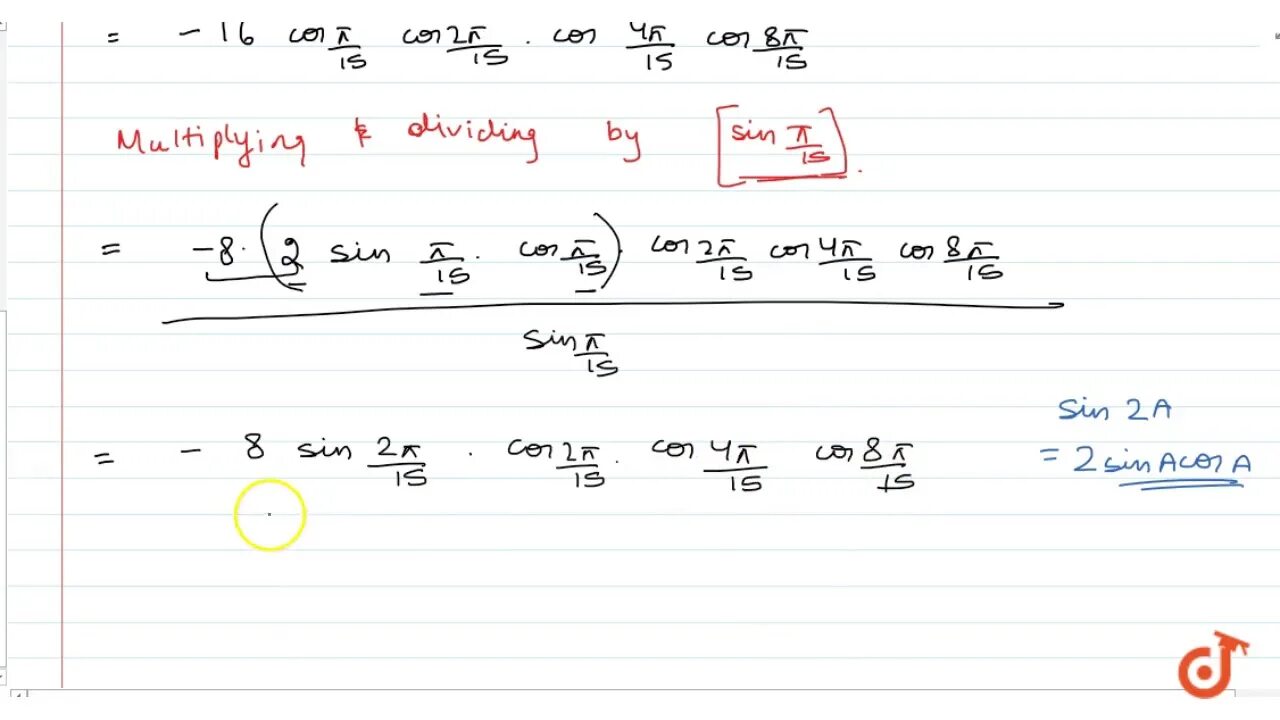 = - 16 cos π/15 cos 2π/15 . cos 4π/15 cos 8π/15
Multiplying & dividing by [sin π/15].
= -8. (2 sin π/15 . cos π/15). cos 2π/15 cos 4π/15 cos 8π/15
sin π/15
sin 2A
= - 8 sin 2π/15 . cos 2π/15 . cos 4π/15 cos 8π/15
= 2 sinA cosA